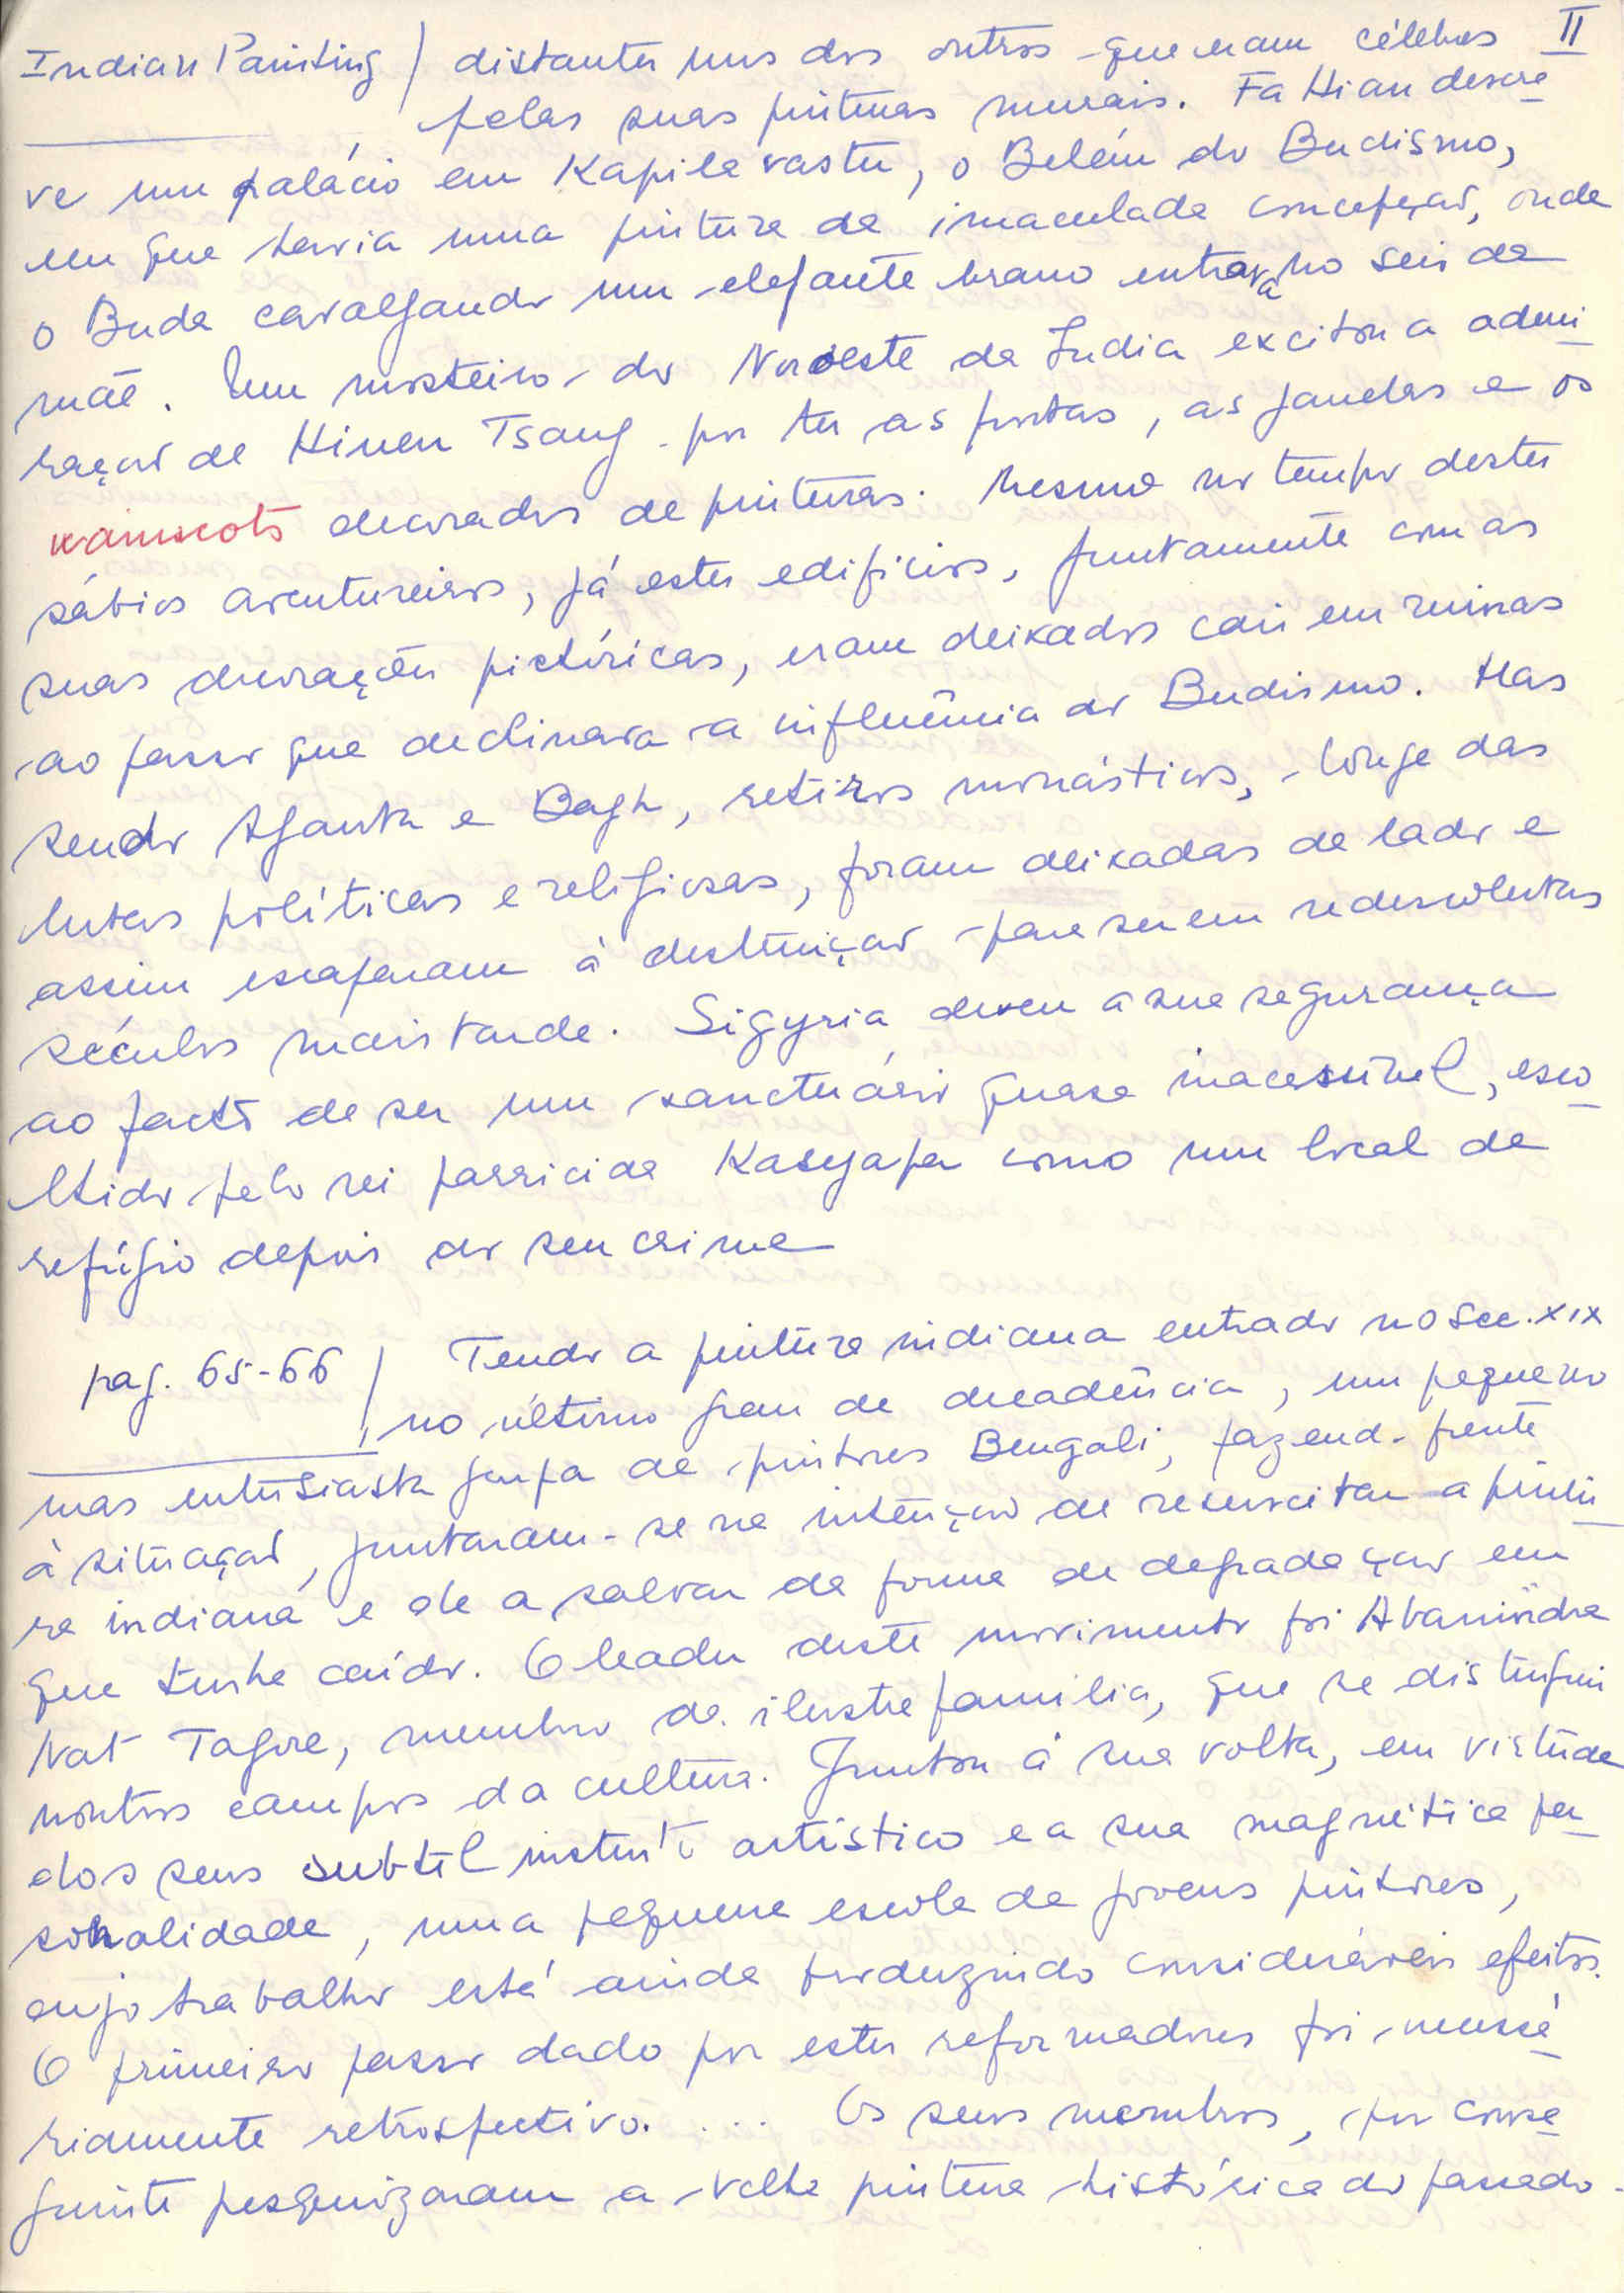 Indian Painting / distantes uns dos outros que eram célebres II
pelas suas pinturas murais. Fa Hian descre
ve um palácio em Kapilavastu, o Belém do Budismo,
em que havia uma pintura da imaculada concepção, onde
o Buda cavalgando um elefante branco entrava no seio da
mãe. Um mosteiro do Noroeste da India excitou a admi
ração de Hiuen Tsang por ter as portas, as janelas e os
wainscots decorados de pinturas. Mesmo no tempo destes
sábios aventureiros, já estes edifícios, juntamente com as
suas decorações pictóricas, eram deixados cair em ruinas
ao passo que declinava a influência do Budismo. Mas
sendo Ajanta e Bagh, retiros monásticos, longe das
lutas políticas e religiosas, foram deixadas de lado e
assim escaparam à destruição para serem redescobertas
séculos mais tarde. Sigyria deveu a sua segurança
ao facto de ser um sanctuário quase inacessível, esco
lhido pelo rei parricida Kasyapa como um local de
refúgio depois do seu crime
pag. 65-66 / Tendo a pintura indiana entrado no sec. XIX
no último grau de decadência, um pequeno
mas entusiasta grupo de pintores Bengali, fazendo frente
à situação, juntaram-se na intenção de resuscitar a pintu
ra indiana e de a salvar da forma de degradação em
que tinha caído. O leader deste movimento foi Abanindra
Nat Tagore, membro da ilustre familia, que se distinguiu
noutros campos da cultura. Juntou á sua volta, em virtude
dos seus subtil instinto artístico e a sua magnética per
sonalidade, uma pequena escola de jovens pintores,
cujo trabalho está ainda produzindo consideráveis efeitos.
O primeiro passo dado por estes reformadores foi necessá
riamente retrospectivo. ... Os seus membros, por conse
guinte pesquizaram a velha pintura histórica do passado.